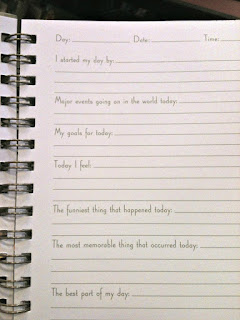 Day: Date: Time:
I started my day by:
Major events going on in the world today:
My goals for today:
Today I feel:
The funniest thing that happened today:
The most memorable thing that occurred today:
The best part of my day: